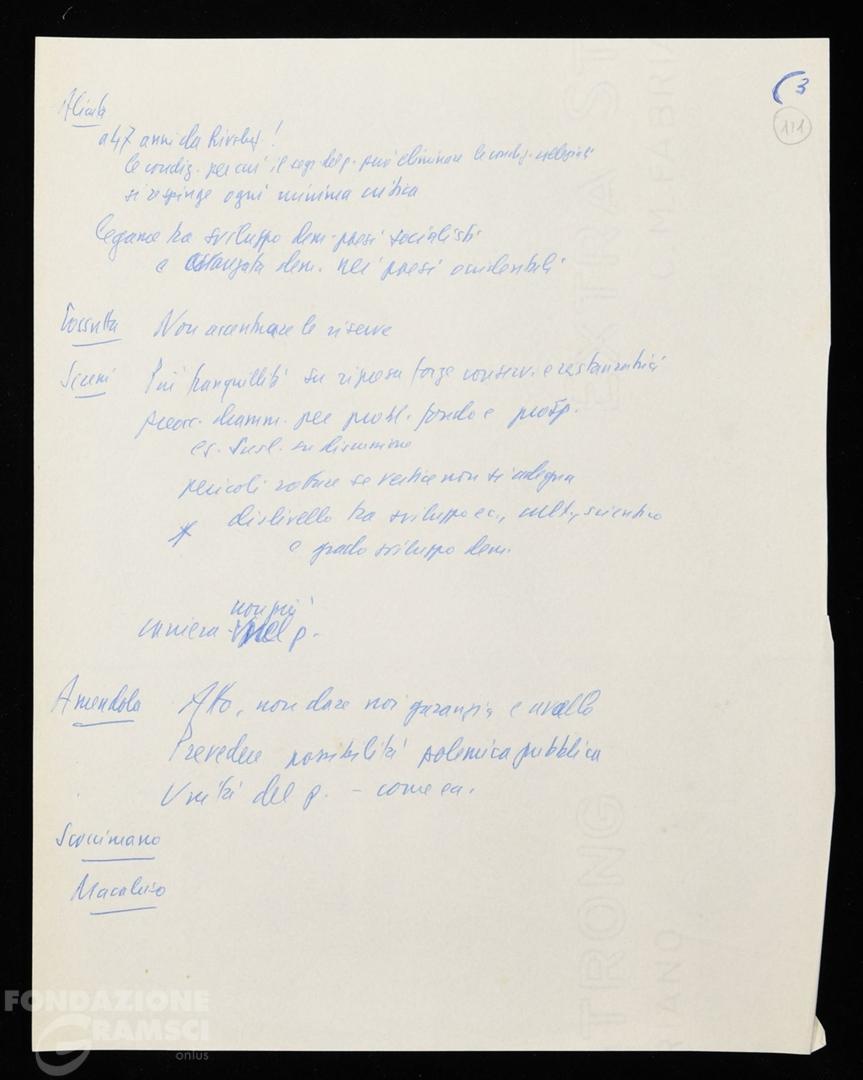 (3
111
Alicata
a 47 anni da Rivoluz!
le condiz. per cui il segr. del p. può eliminare le condiz.
si respinge ogni minima critica
legame tra sviluppo dem. paesi socialisti
e avanzata dem. nei paesi occidentali
Cossutta Non accentuare le riserve
Sereni Più tranquillità su ripresa forze conserv. e restauratrici
preocc. dramm. per probl. fondo e prosp.
es. Susl. su discussione
pericoli rotture se vertice non si adegua
dislivello tra sviluppo ec., cult., scientifico
e grado sviluppo dem.
non più
carriera - nel p.
Amendola Atto, non dare noi garanzia e avallo
Prevedere possibilità polemica pubblica
Unità del p. - come ca.
Scoccimarro
Macaluso
EXTRA ST
C.M. FABRIA
TRONG
RIANO
FONDAZIONE
GRAMSCI
onlus